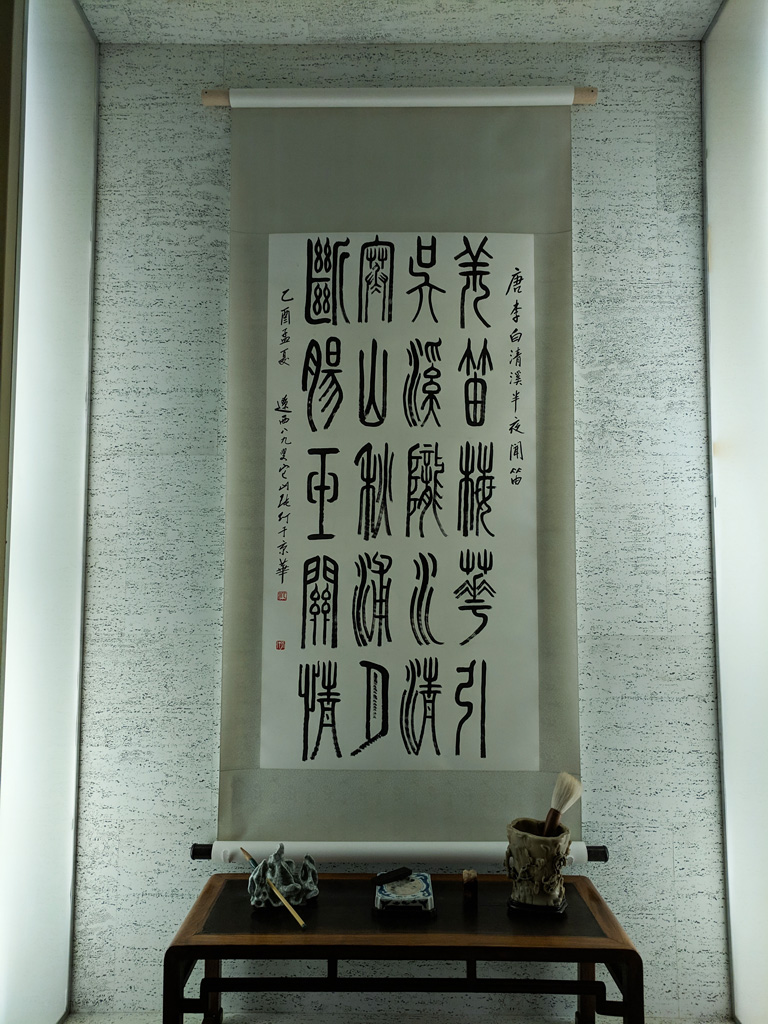 唐李白清溪半夜聞笛
羌笛梅華引
吳溪隴水清
寒山秋浦月
斷腸玉關情
乙酉孟夏 八九叟 于京華